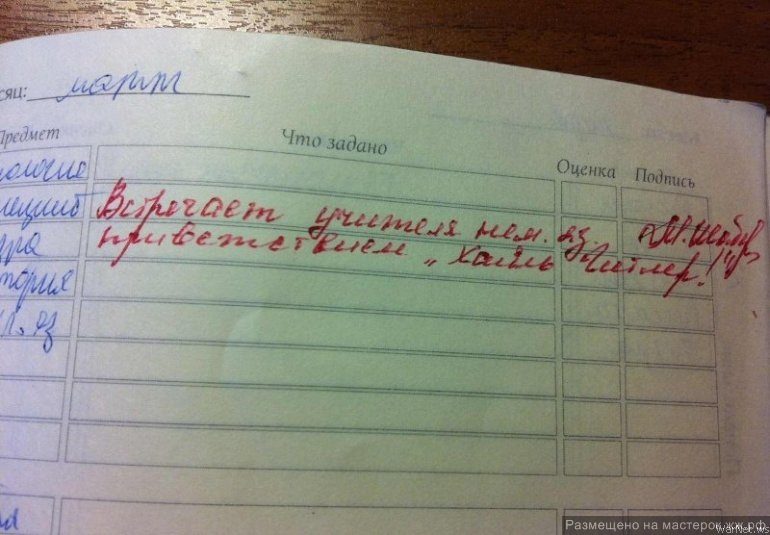 сяц: март
Предмет Что задано Оценка Подпись
ология
Встречает учителя нем. яз.
приветствием „Хайль Гитлер!"
тория
яз
Размещено на мастерок.жж.рф
WarNet.ws